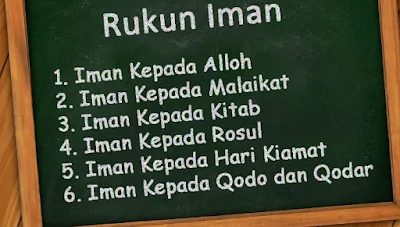 Rukun Iman
1. Iman Kepada Alloh
2. Iman Kepada Malaikat
3. Iman Kepada Kitab
4. Iman Kepada Rosul
5. Iman Kepada Hari Kiamat
6. Iman Kepada Qodo dan Qodar